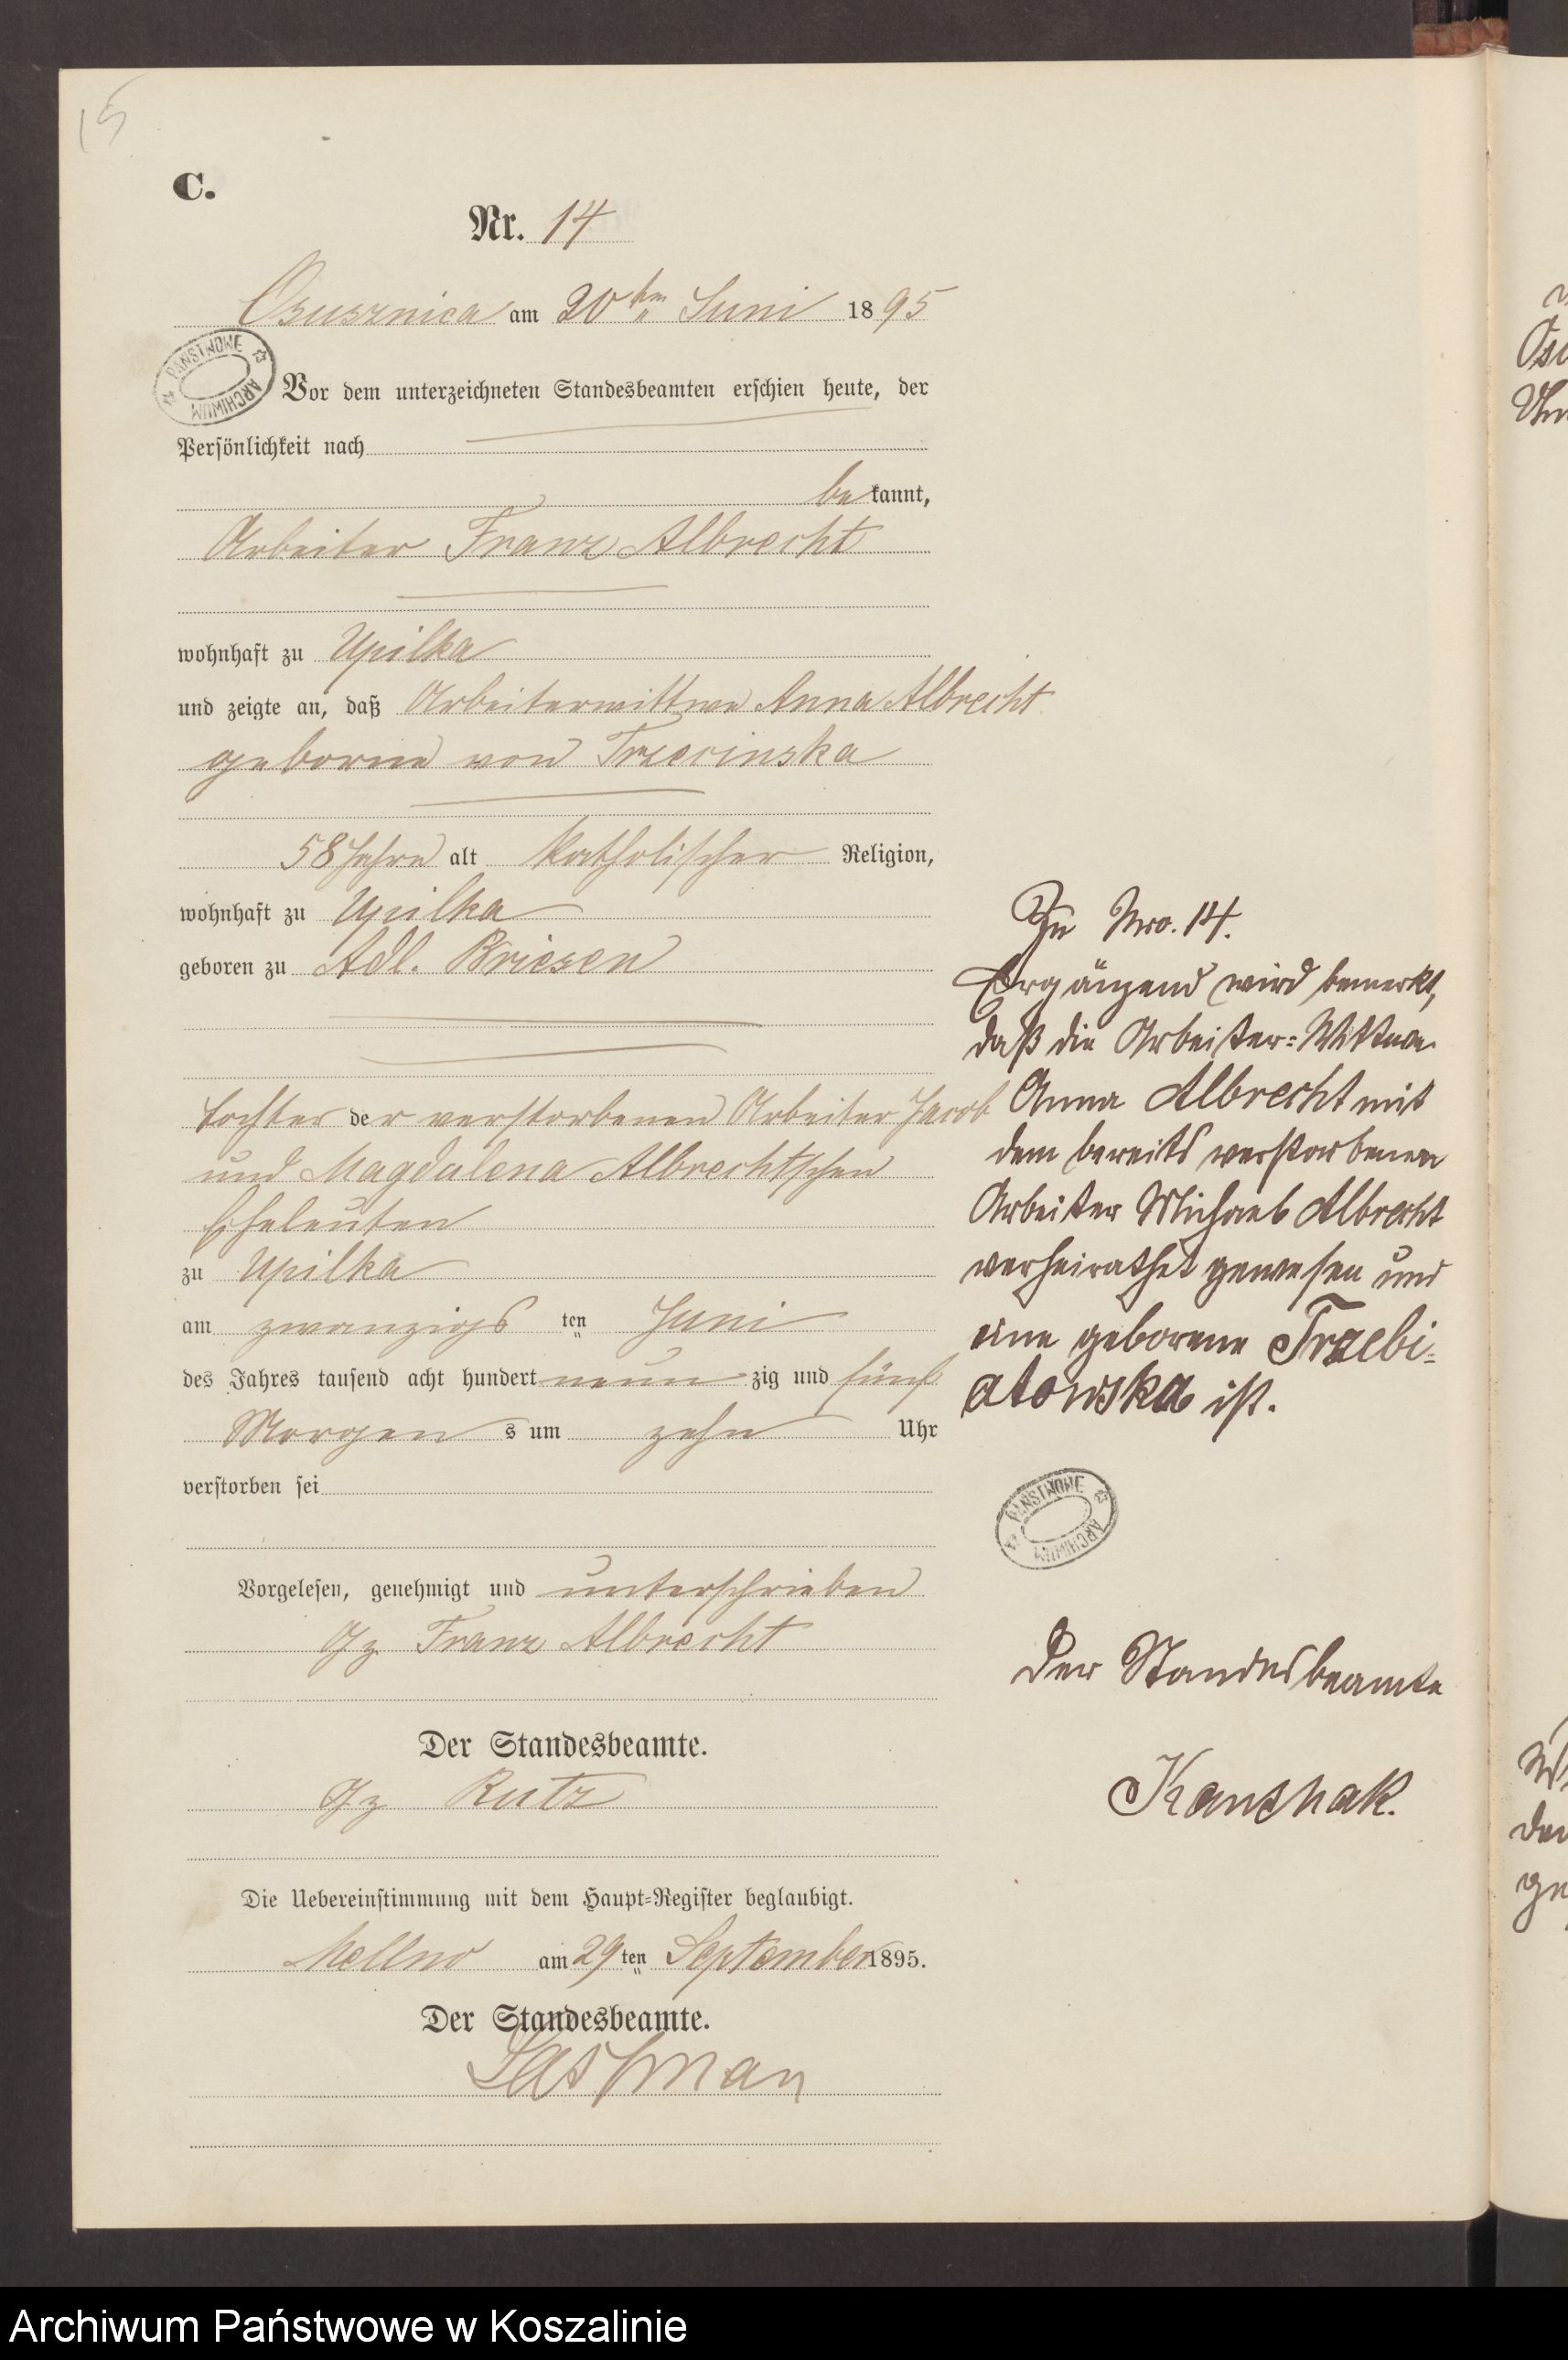 15
C.
Nr. 14
Osusznica am 20ten Juni 1895
PAŃSTWOWE ARCHIWUM
Vor dem unterzeichneten Standesbeamten erschien heute, der
Persönlichkeit nach
bekannt,
Arbeiter Franz Albrecht
wohnhaft zu Upilka
und zeigte an, daß Arbeiterwittwe Anna Albrecht
geborne von Trzecinska
58 Jahre alt katholischer Religion,
wohnhaft zu Upilka
geboren zu Adl. Briesen
tochter der verstorbenen Arbeiter Jacob
und Magdalena Albrecht'schen
Eheleuten
zu Upilka
am zwanzigs ten Juni
des Jahres tausend acht hundert neun zig und fünf
Morgen s um zehn Uhr
verstorben sei
Vorgelesen, genehmigt und unterschrieben
Gz Franz Albrecht
Der Standesbeamte.
Gz Rutz
Die Uebereinstimmung mit dem Haupt-Register beglaubigt.
Mellno am 29ten September 1895.
Der Standesbeamte.
Zu Nro. 14.
Ergänzend wird bemerkt,
daß die Arbeiter-Wittwe
Anna Albrecht mit
dem bereits verstorbenen
Arbeiter Michael Albrecht
verheirathet gewesen und
eine geborene Trzebi-
atowska ist.
PAŃSTWOWE ARCHIWUM
Der Standesbeamte
Archiwum Państwowe w Koszalinie